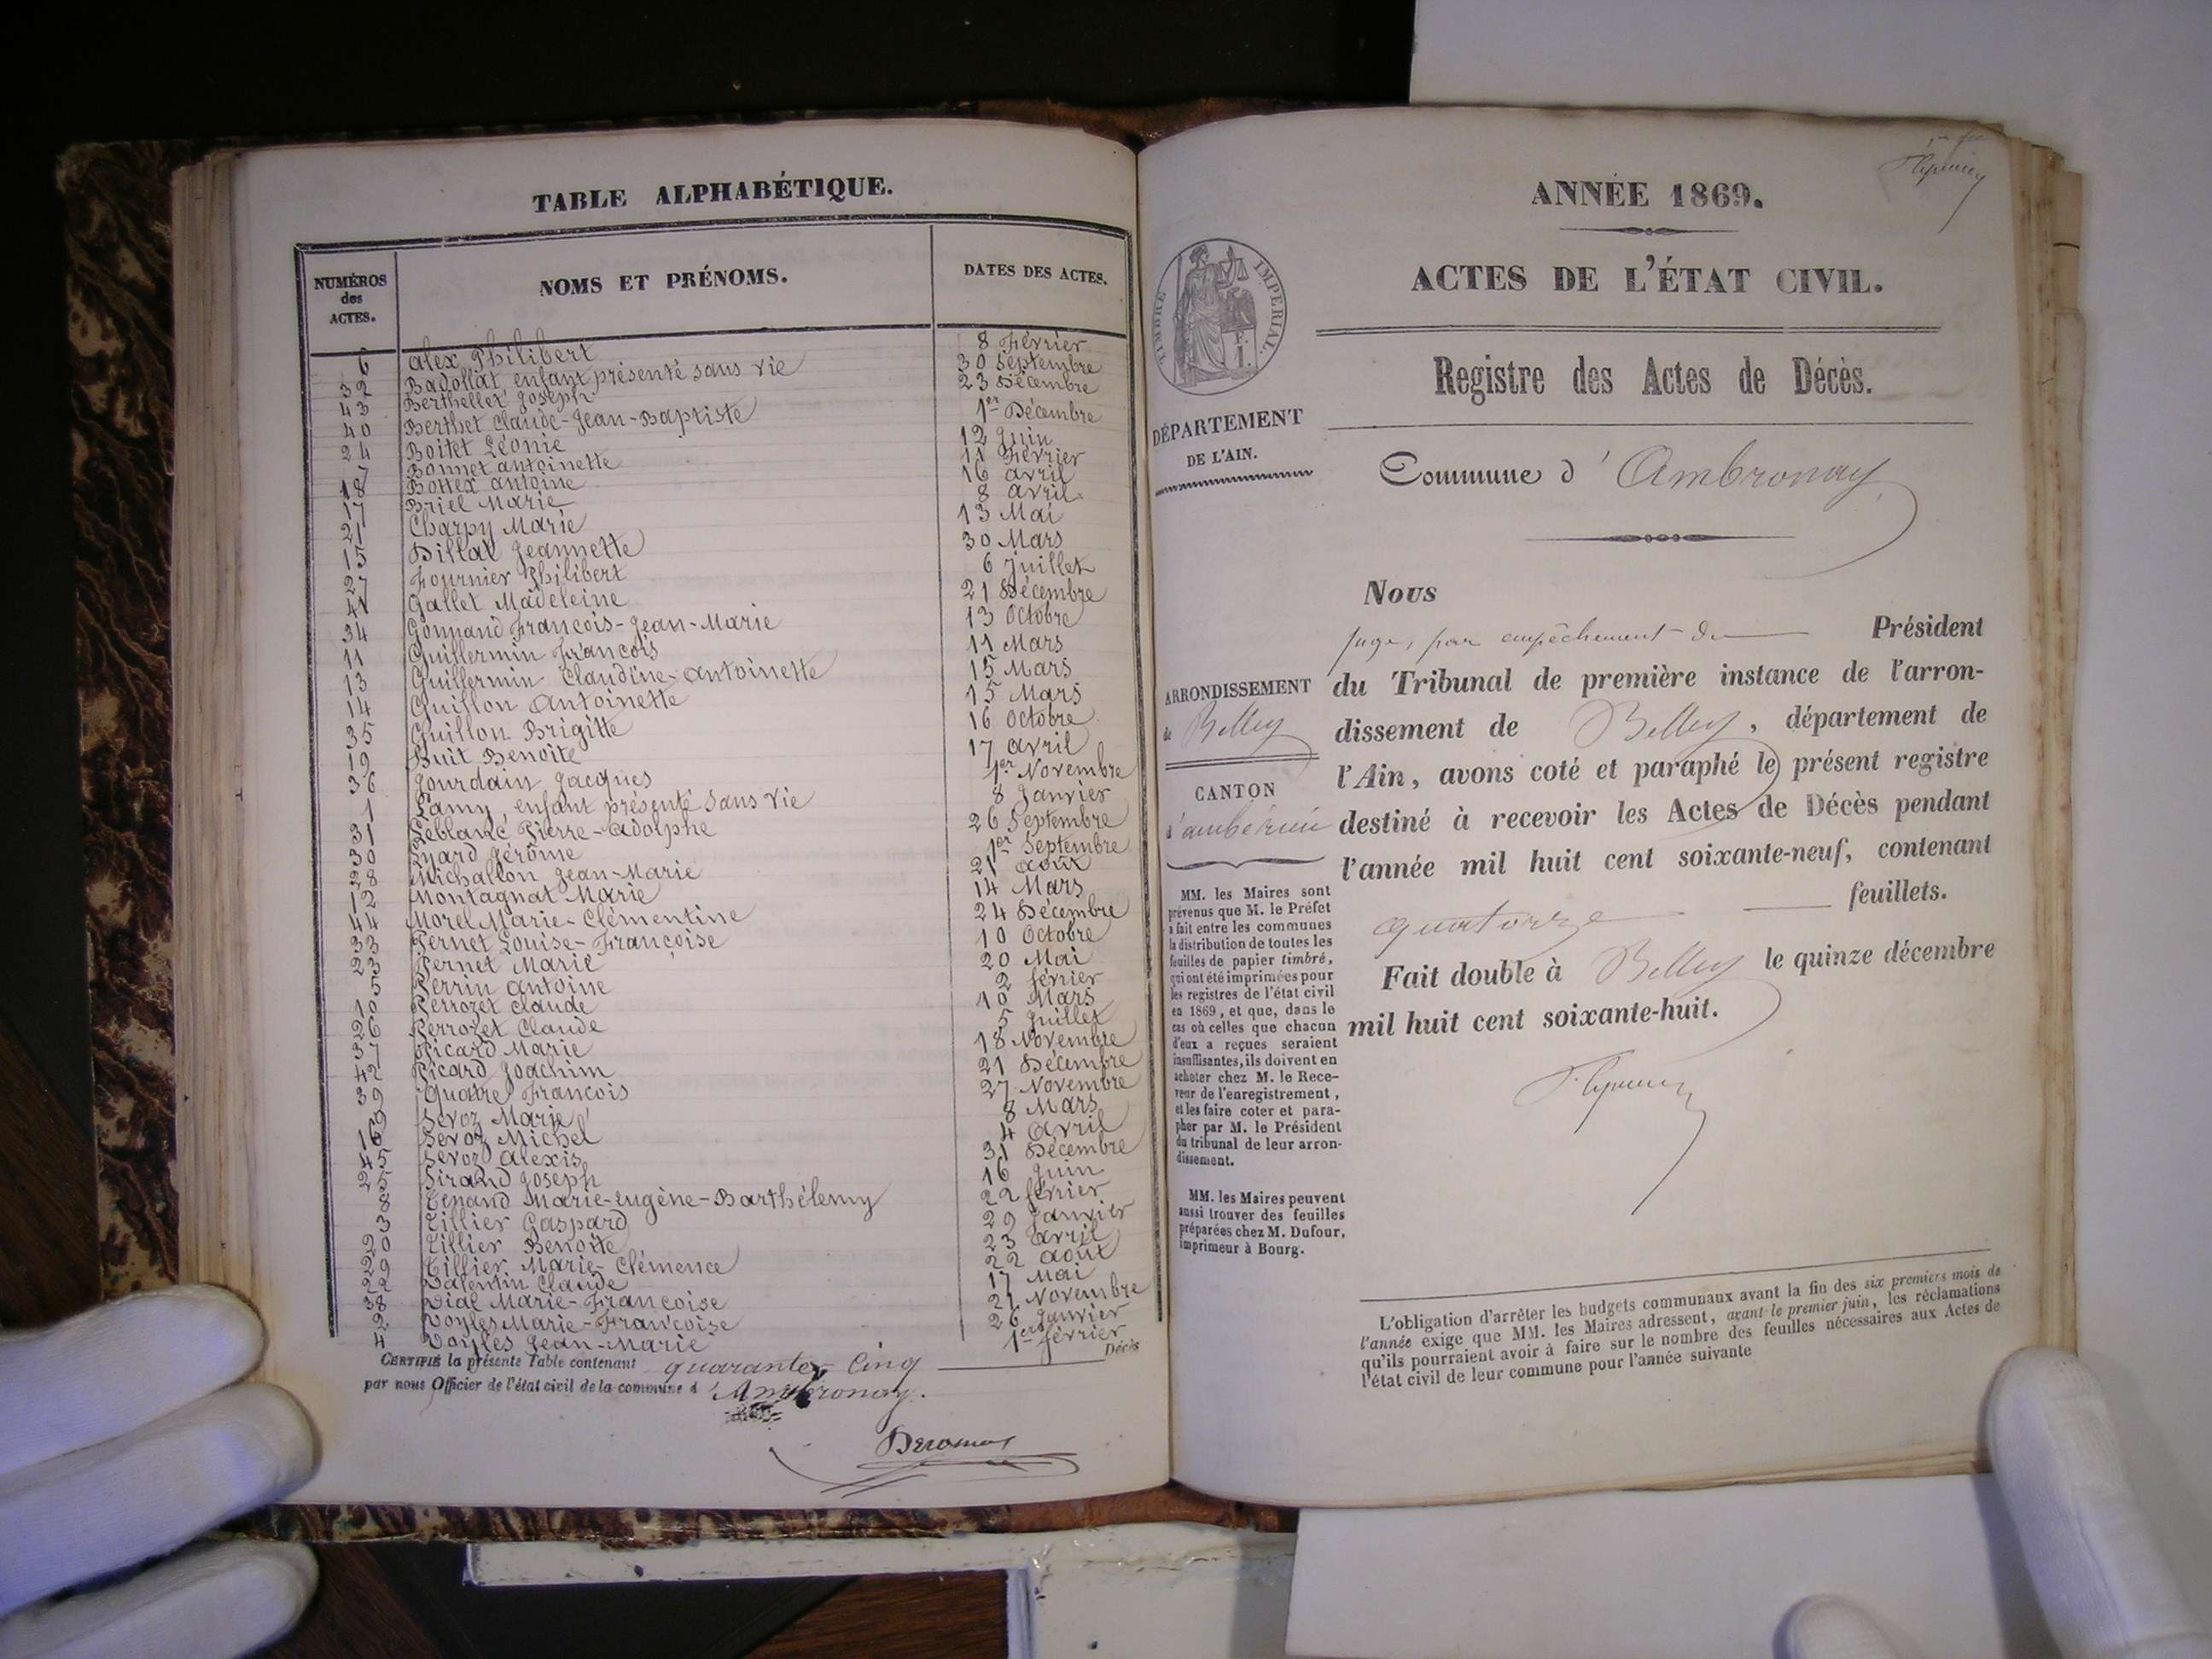 TABLE ALPHABÉTIQUE.
NUMÉROS des ACTES. NOMS ET PRÉNOMS. DATES DES ACTES.
6 Alex Philibert 8 Février
32 Badollat, enfant présenté sans vie 30 Septembre
43 Berthellet Joseph 23 Décembre
40 Berthet Claude-Jean-Baptiste 1er Décembre
24 Boitet Léonie 12 Juin
7 Bonnet Antoinette 11 Février
18 Bottex Antoine 16 Avril
17 Briel Marie 8 Avril
21 Charpy Marie 13 Mai
15 Dillat Jeannette 30 Mars
27 Fournier Philibert 6 Juillet
41 Gallet Madeleine 21 Décembre
34 Gonnand François-Jean-Marie 13 Octobre
11 Guillermin François 11 Mars
13 Guillermin Claudine-Antoinette 15 Mars
14 Guillon Antoinette 15 Mars
35 Guillon Brigitte 16 Octobre
19 Huit Benoîte 17 Avril
36 Jourdain Jacques 1er Novembre
1 Lamy, enfant présenté sans vie 8 Janvier
31 Leblanc Pierre-Adolphe 26 Septembre
30 Lyard Jérôme 1er Septembre
28 Michallon Jean-Marie 21 Août
12 Montagnat Marie 14 Mars
44 Morel Marie-Clémentine 24 Décembre
33 Pernet Louise-Françoise 10 Octobre
23 Pernet Marie 20 Mai
5 Perrin Antoine 2 février
10 Perrozet Claude 10 Mars
26 Perrozet Claude 5 Juillet
37 Picard Marie 18 Novembre
42 Picard Joachim 21 Décembre
39 Quatre François 27 Novembre
9 Sevoz Marie 8 Mars
16 Sevoz Michel 4 Avril
45 Sevoz Alexis 31 Décembre
25 Sirand Joseph 16 Juin
8 Tenand Marie-Eugène-Barthélemy 22 février
3 Tillier Gaspard 29 Janvier
20 Tillier Benoîte 23 Avril
29 Tillier Marie-Clémence 22 Août
22 Valentin Claude 17 Mai
38 Vial Marie-Françoise 21 Novembre
2 Voyles Marie-Françoise 26 Janvier
4 Voyles Jean-Marie 1er février
CERTIFIÉ la présente Table contenant quarante-cinq Décès
par nous Officier de l'état civil de la commune d'Ambronay.
ANNÉE 1869.
ACTES DE L'ÉTAT CIVIL.
TIMBRE IMPÉRIAL.
F. 1.
Registre des Actes de Décès.
DÉPARTEMENT
DE L'AIN.
Commune d'Ambronay
ARRONDISSEMENT
de Belley
CANTON
d'ambérieu
MM. les Maires sont
prévenus que M. le Préfet
a fait entre les communes
la distribution de toutes les
feuilles de papier timbré,
qui ont été imprimées pour
les registres de l'état civil
en 1869, et que, dans le
cas où celles que chacun
d'eux a reçues seraient
insuffisantes, ils doivent en
acheter chez M. le Rece-
veur de l'enregistrement,
et les faire coter et para-
pher par M. le Président
du tribunal de leur arron-
dissement.
MM. les Maires peuvent
aussi trouver des feuilles
préparées chez M. Dufour,
imprimeur à Bourg.
Nous
juge, par empêchement du Président
du Tribunal de première instance de l'arron-
dissement de Belley, département de
l'Ain, avons coté et paraphé le présent registre
destiné à recevoir les Actes de Décès pendant
l'année mil huit cent soixante-neuf, contenant
quatorze feuillets.
Fait double à Belley le quinze décembre
mil huit cent soixante-huit.
L'obligation d'arrêter les budgets communaux avant la fin des six premiers mois de
l'année exige que MM. les Maires adressent, avant le premier juin, les réclamations
qu'ils pourraient avoir à faire sur le nombre des feuilles nécessaires aux Actes de
l'état civil de leur commune pour l'année suivante